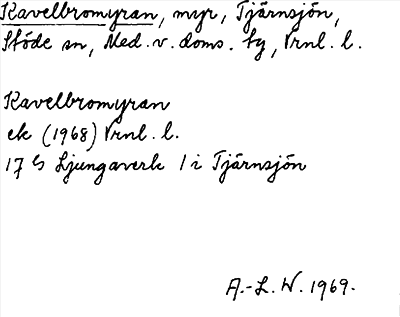 Kavelbromyran, myr, Tjärnsjön,
Stöde sn, Med.v.doms. tg, Vrnl. l.
Kavelbromyran
ek (1968) Vrnl. l.
17 G Ljungaverk 1 i Tjärnsjön
A.-L. W. 1969.